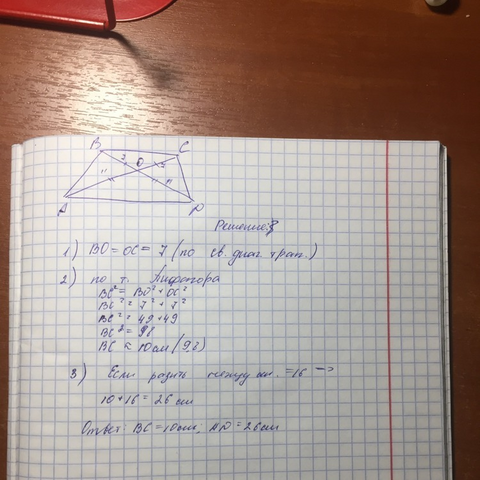 B C
7 O 5
11 11
A D
Решение:
1) BO = OC = 7 (по св. диаг. трап.)
2) по т. Пифагора
BC² = BO² + OC²
BC² = 7² + 7²
BC² = 49 + 49
BC² = 98
BC ≈ 10 см (9,2)
3) Если между = 16 →
10 + 16 = 26 см
Ответ: BC = 10 см; AD = 26 см